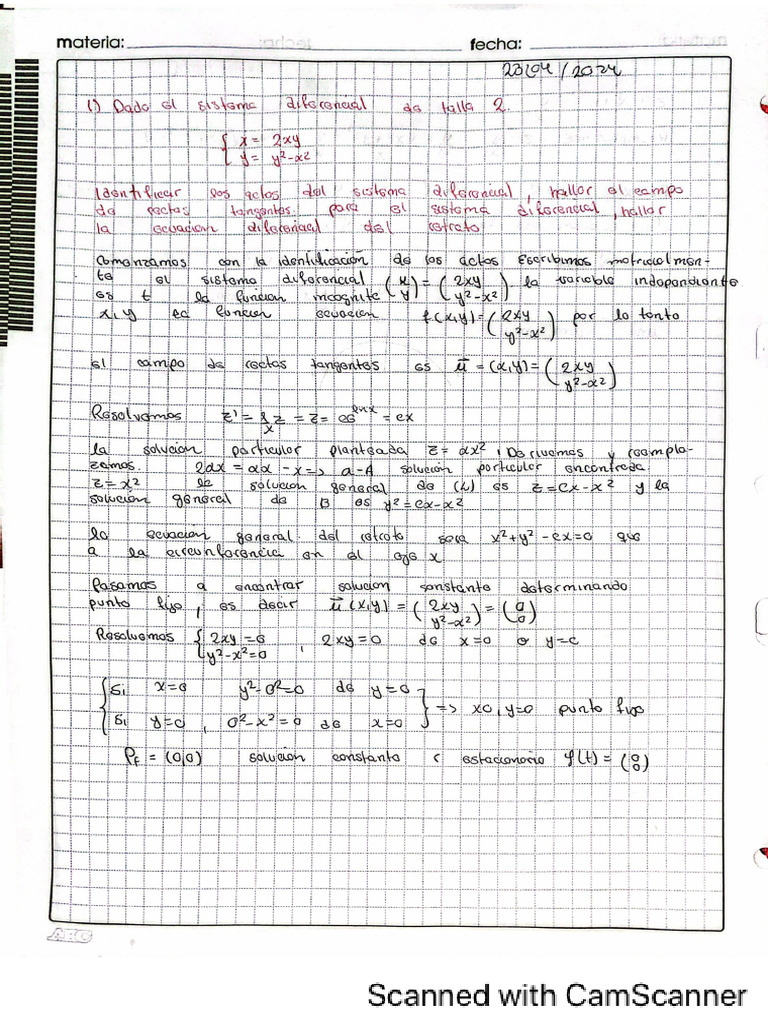 materia: fecha:
23/04/2024
1) Dado el sistema diferencial de talla 2.
{ x = 2xy
y = y²-x²
Identificar los actos del sistema diferencial, hallar el campo
de rectas tangentes para el sistema diferencial, hallar
la ecuación diferencial del retrato
Comenzamos con la identificación de los actos Escribimos matricialmen-
te el sistema diferencial (x y) = (2xy y²-x²) la variable independiente
es t la función incognita
x,y la función ecuación f(x,y) = (2xy y²-x²) por lo tanto
el campo de rectas tangentes es ū = (x,y) = (2xy y²-x²)
Resolvemos z' = z = z =
la solución particular planteada z = αx², Derivemos y reempla-
zamos. 2ax = αx - x => a-A solución particular encontrada.
z = x² la solución general de (L) es z = cx - x² y la
solución general de B es y² = cx - x²
la ecuación general del retrato sera x² + y² - cx = 0 que
a la circunferencia en el eje x
Pasamos a encontrar solución constante determinando
punto fijo, es decir ū (x,y) = (2xy y²-x²) = (0 0)
Resolvemos { 2xy = 0 y²-x² = 0, 2xy = 0 de x = 0 o y = c
{ Si x = 0 y²-0² = 0 de y = 0
Si y = 0, 0²-x² = 0 de x = 0 } => x0, y=0 punto fijo
PF = (0,0) solución constante r estacionario φ(t) = (0 0)
ARC
Scanned with CamScanner